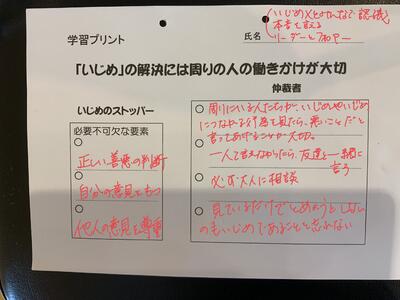 いじめXとみんなで認識
本音を言える
リーダーとフォロワー
学習プリント
氏名
「いじめ」の解決には周りの人の働きかけが大切
仲裁者
いじめのストッパー
必要不可欠な要素
正しい善悪の判断
自分の意見をもつ
他人の意見を尊重
周りにいる人たちが、いじめやいじめ
につながる行為を見たら、悪いことだと
言ってあげることが大切。
一人で言えなかったら、友達と一緒に
言う
必ず大人に相談
見ているだけでとめようとしない
のもいじめであることを忘れない